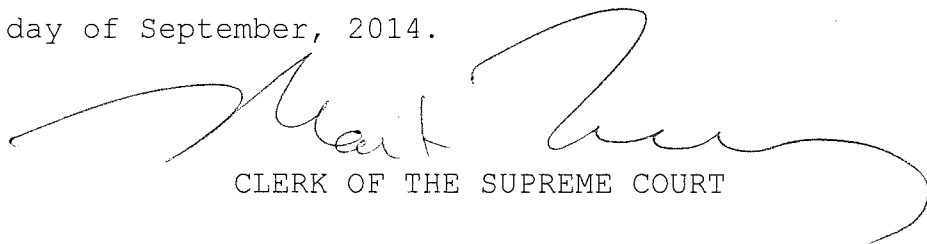 day of September, 2014.
Mark
CLERK OF THE SUPREME COURT